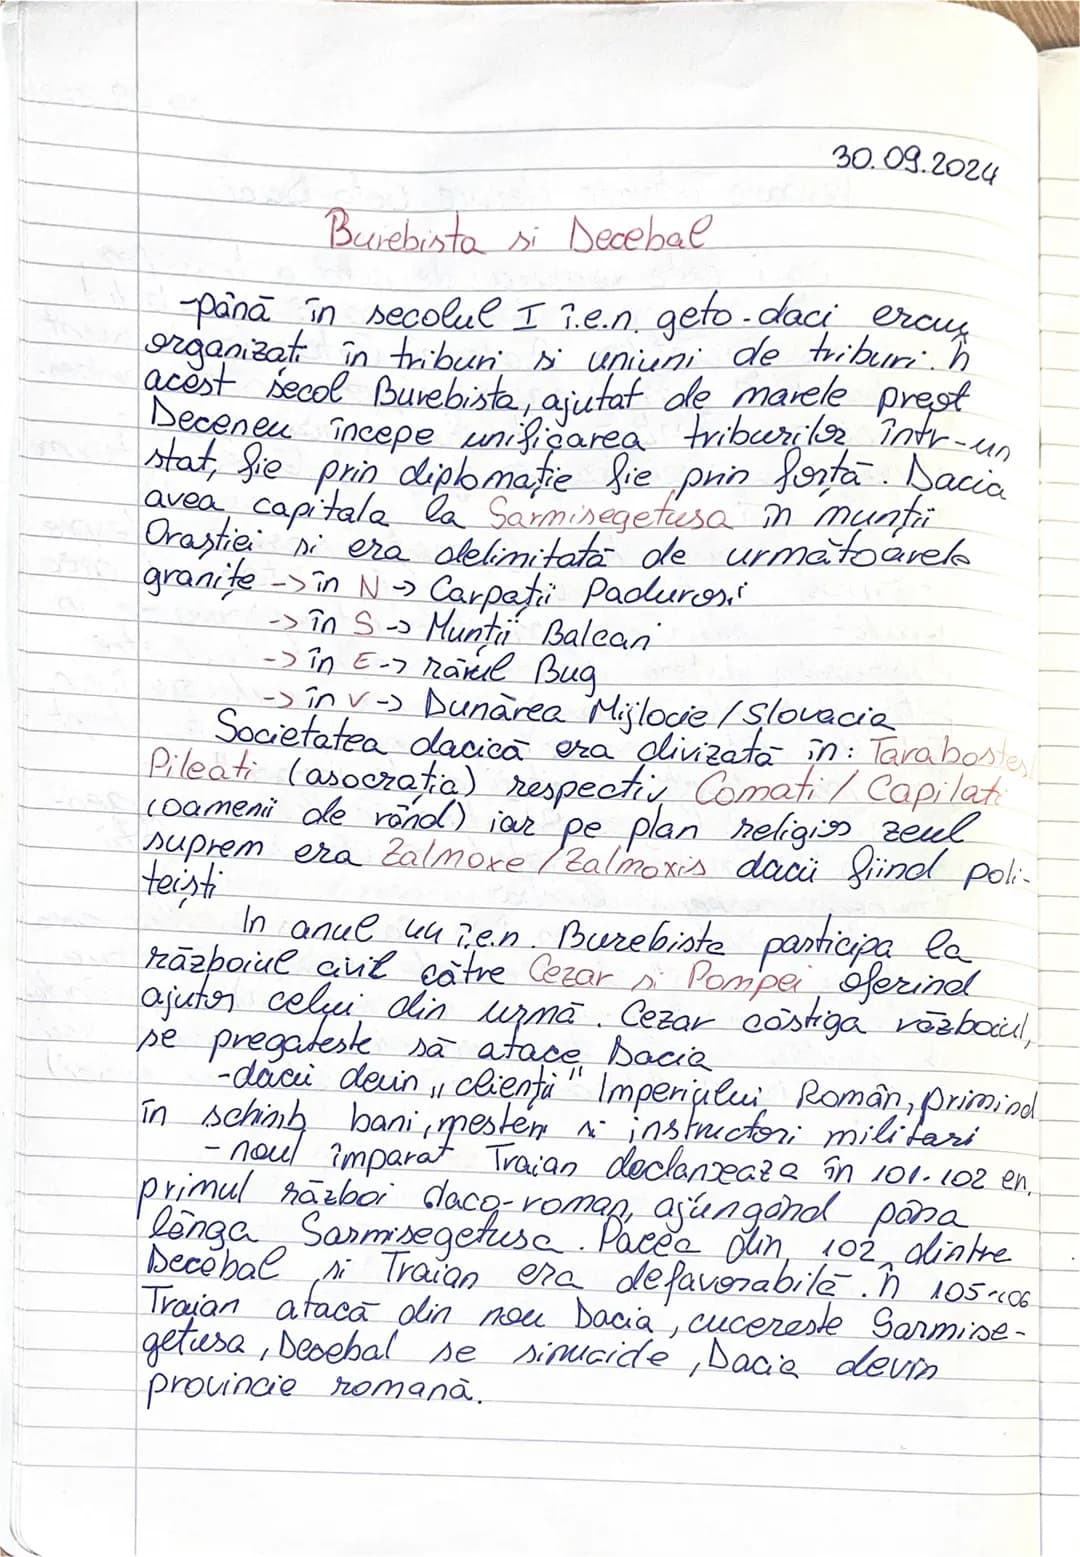 30.09.2024
Burebista si Decebal
-până în secolul I î.e.n. geto-daci erau
organizați în triburi si uniuni de triburi. În
acest secol Burebista, ajutat de marele preot
Deceneu începe unificarea triburilor într-un
stat, fie prin diplomație fie prin forță. Dacia
avea capitala la Sarmisegetusa în munții
Orăștiei si era delimitată de următoarele
granițe -> în N -> Carpații Padurosi
-> în S -> Munții Balcani
-> în E -> râul Bug
-> în V -> Dunărea Mijlocie / Slovacia
Societatea dacică era divizată în: Tarabostes/
Pileati (asocrația) respectiv Comati / Capilati
(oamenii de rând) iar pe plan religios zeul
suprem era Zalmoxe / Zalmoxis dacii fiind poli-
teisti
In anul 44 î.e.n. Burebista participa la
războiul civil către Cezar si Pompei oferind
ajutor celui din urmă. Cezar câstiga războiul,
se pregateste să atace Dacia
-dacii devin „clienții" Imperiului Român, primind
în schimb bani, mesteri si instructori militari
- noul împarat Traian declanseaza în 101-102 en.
primul război daco-roman, ajungând pâna
lânga Sarmisegetusa. Pacea din 102 dintre
Decebal si Traian era defavorabilă. În 105-106
Traian atacă din nou Dacia, cucereste Sarmise-
getusa, Decebal se sinucide, Dacia devin
provincie romană.